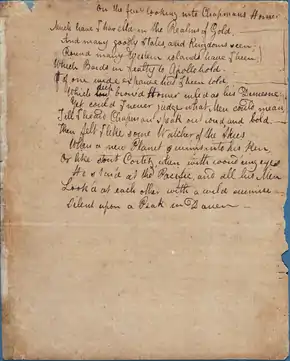 On the first looking into Chapman's Homer
Much have I travell'd in the Realms of Gold,
And many goodly States, and Kingdoms seen;
Round many Western islands have I been,
Which Bards in fealty to Apollo hold.
Of one wide expanse had I been told,
Which deep brow'd Homer ruled as his Demesne;
Yet could I never judge what Men could mean,
Till I heard Chapman speak out loud and bold.
Then felt I like some Watcher of the Skies
When a new Planet swims into his Ken,
Or like stout Cortez, when with wond'ring eyes
He star'd at the Pacific, and all his Men
Look'd at each other with a wild surmise
Silent upon a Peak in Darien